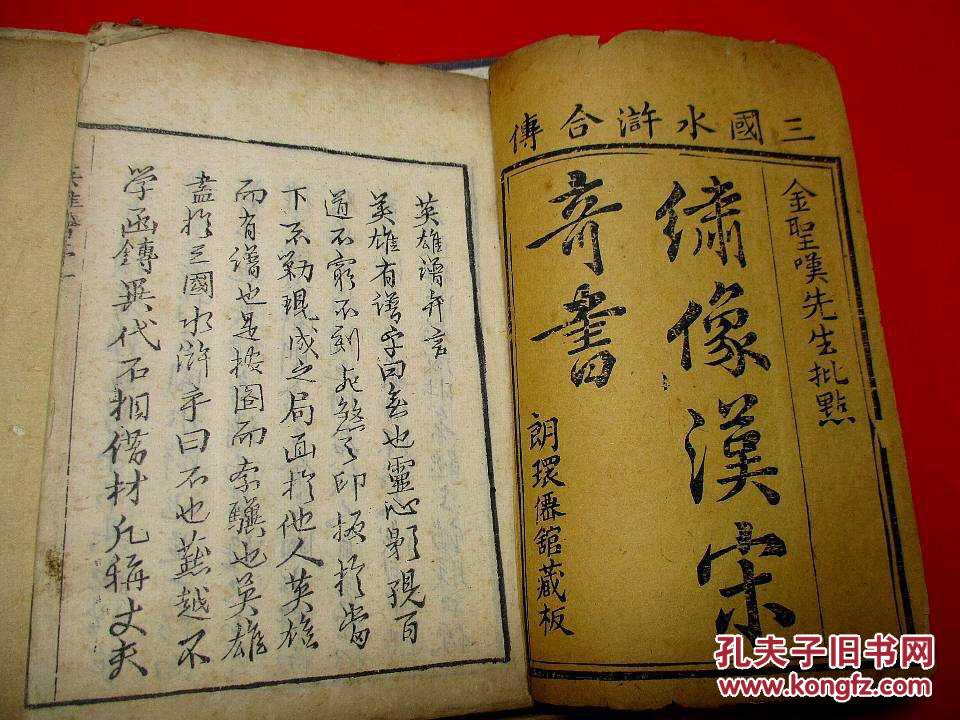 三國水滸合傳
金聖嘆先生批點
繡像漢宋
奇書
朗環僊館藏板
英雄譜弁言
英雄有譜乎曰無也靈心影現百
道不窮不到死煞之印板於當
下不勒現成之局面於他人英雄
而有譜也是按圖而索驥也英雄
盡於三國水滸乎曰不也燕越不
学函鏄異代不相借材凡稱丈夫
孔夫子旧书网
www.kongfz.com